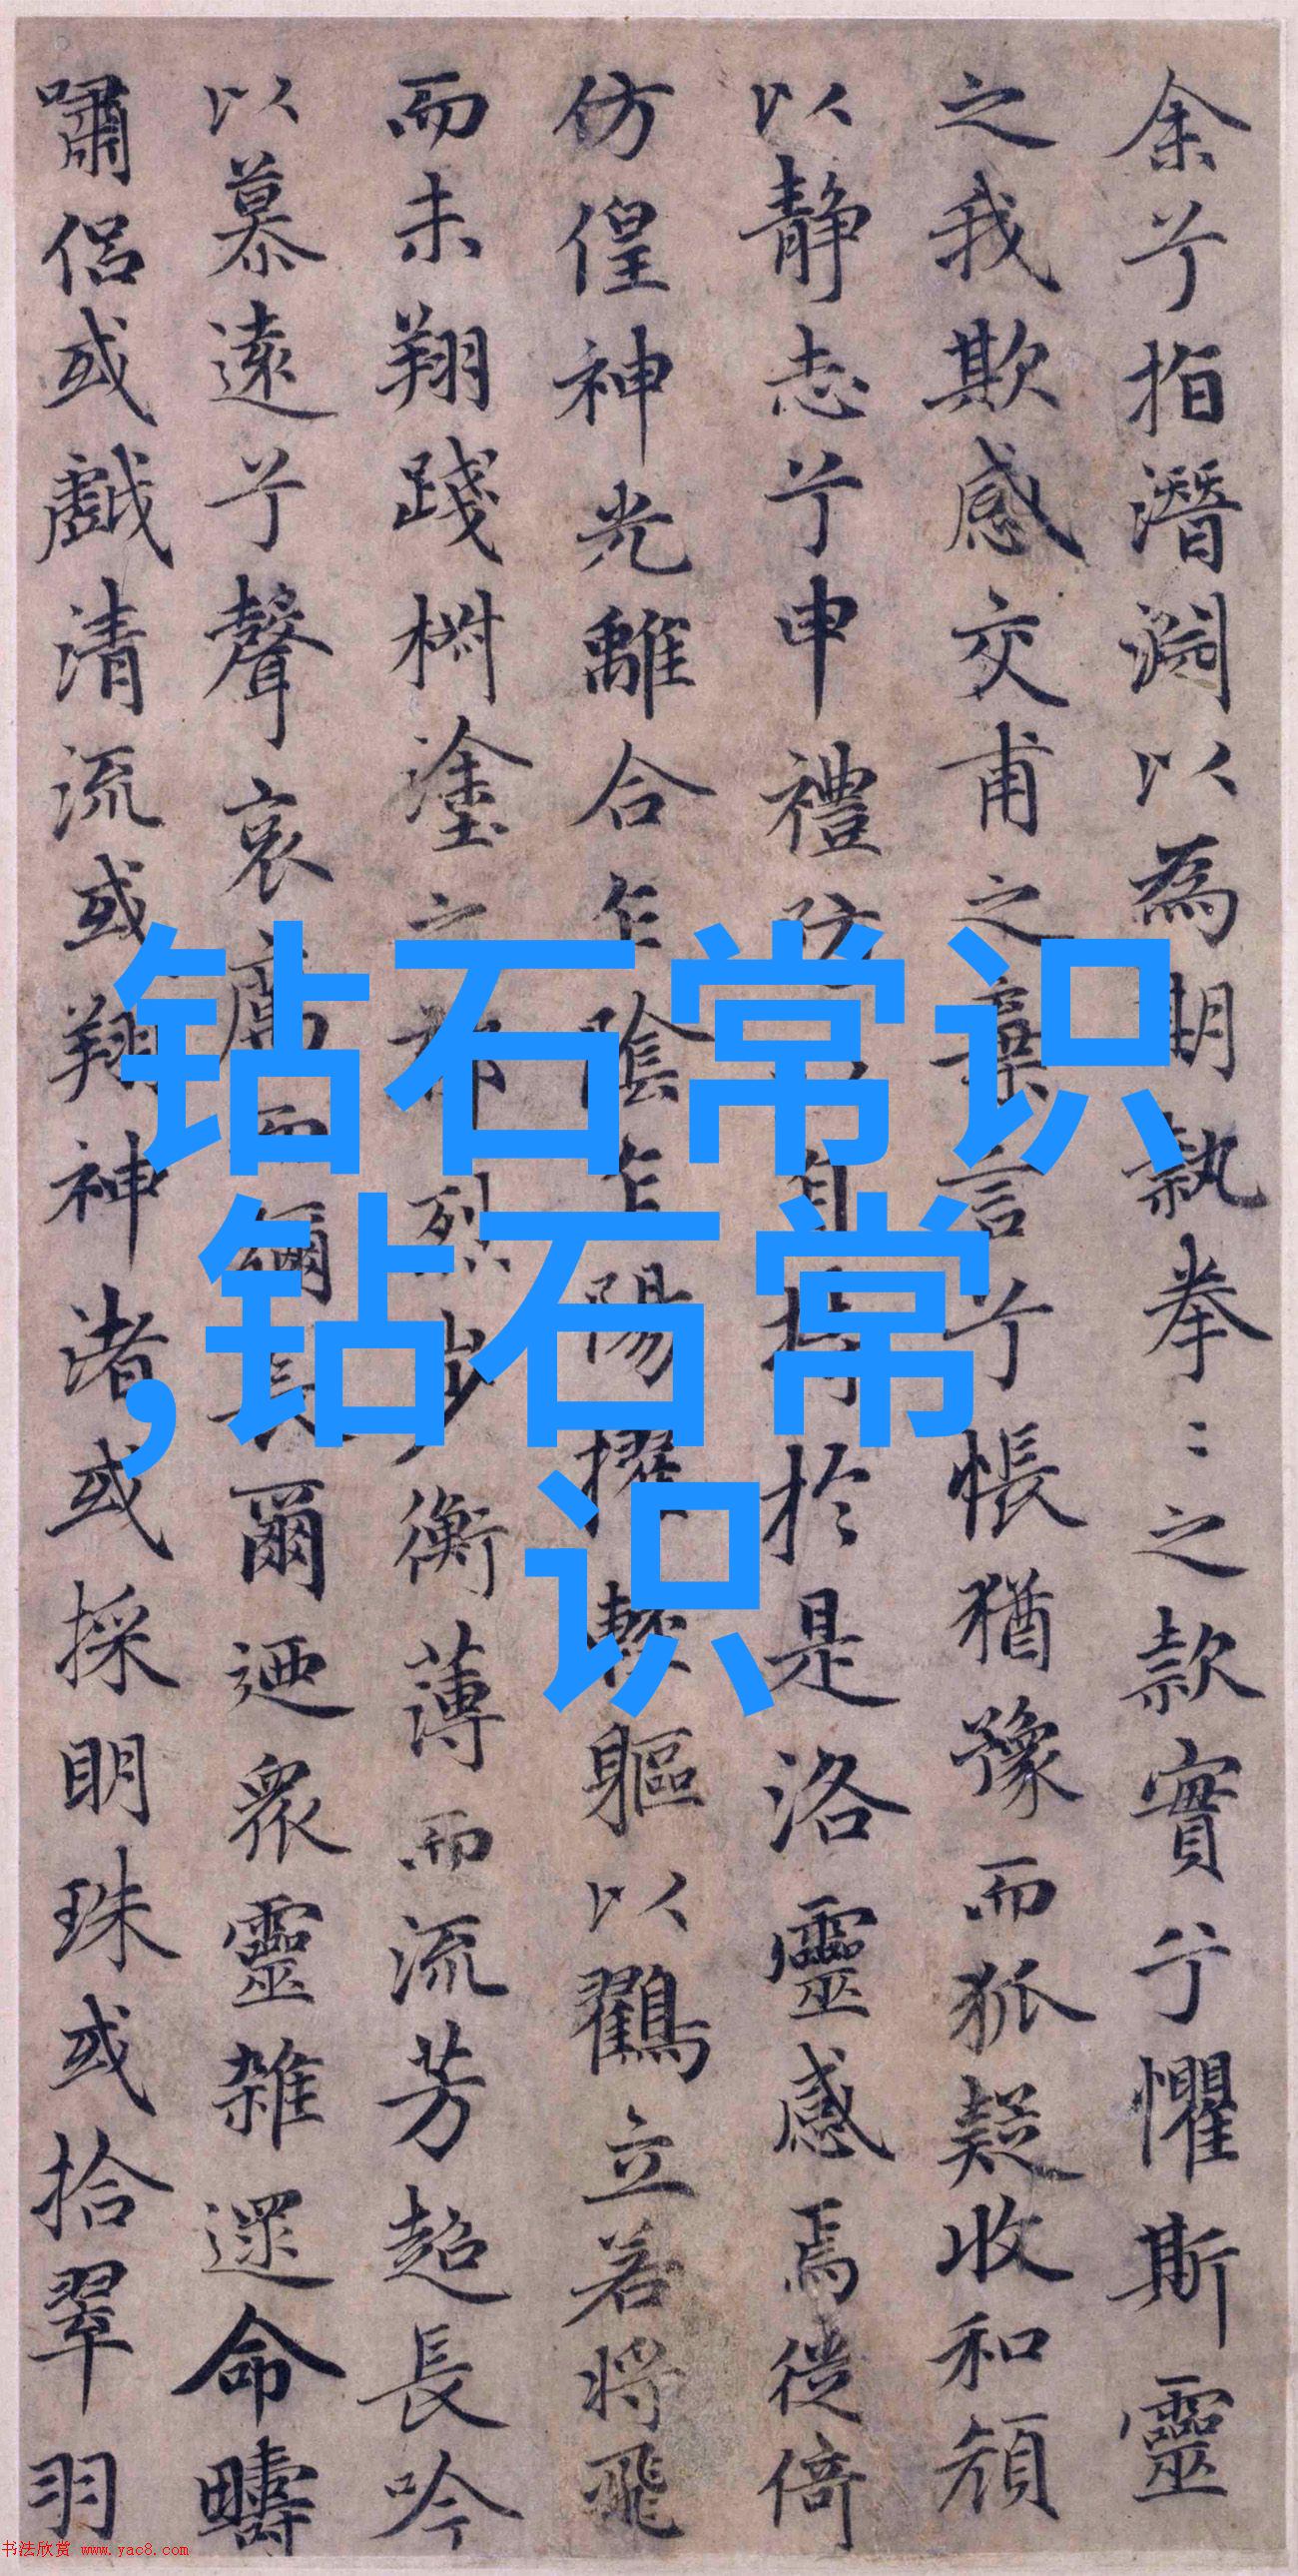 余兮指潛淵以為期執拳〻之款實兮懼斯靈
之我欺感交甫之棄言兮悵猶豫而狐疑收和顏
以靜志兮申禮防自持於是洛靈感焉徙倚
仿偟神光離合乍陰乍陽擢輕軀以鶴立若將飛
而未翔踐椒塗之郁烈步衡薄而流芳超長吟
以慕遠兮聲哀厲而彌長爾迺眾靈雜遝命疇
嘯侶或戲清流或翔神渚或採明珠或拾翠羽
钻石常识
,钻石常
识
书法欣赏 www.yac8.com